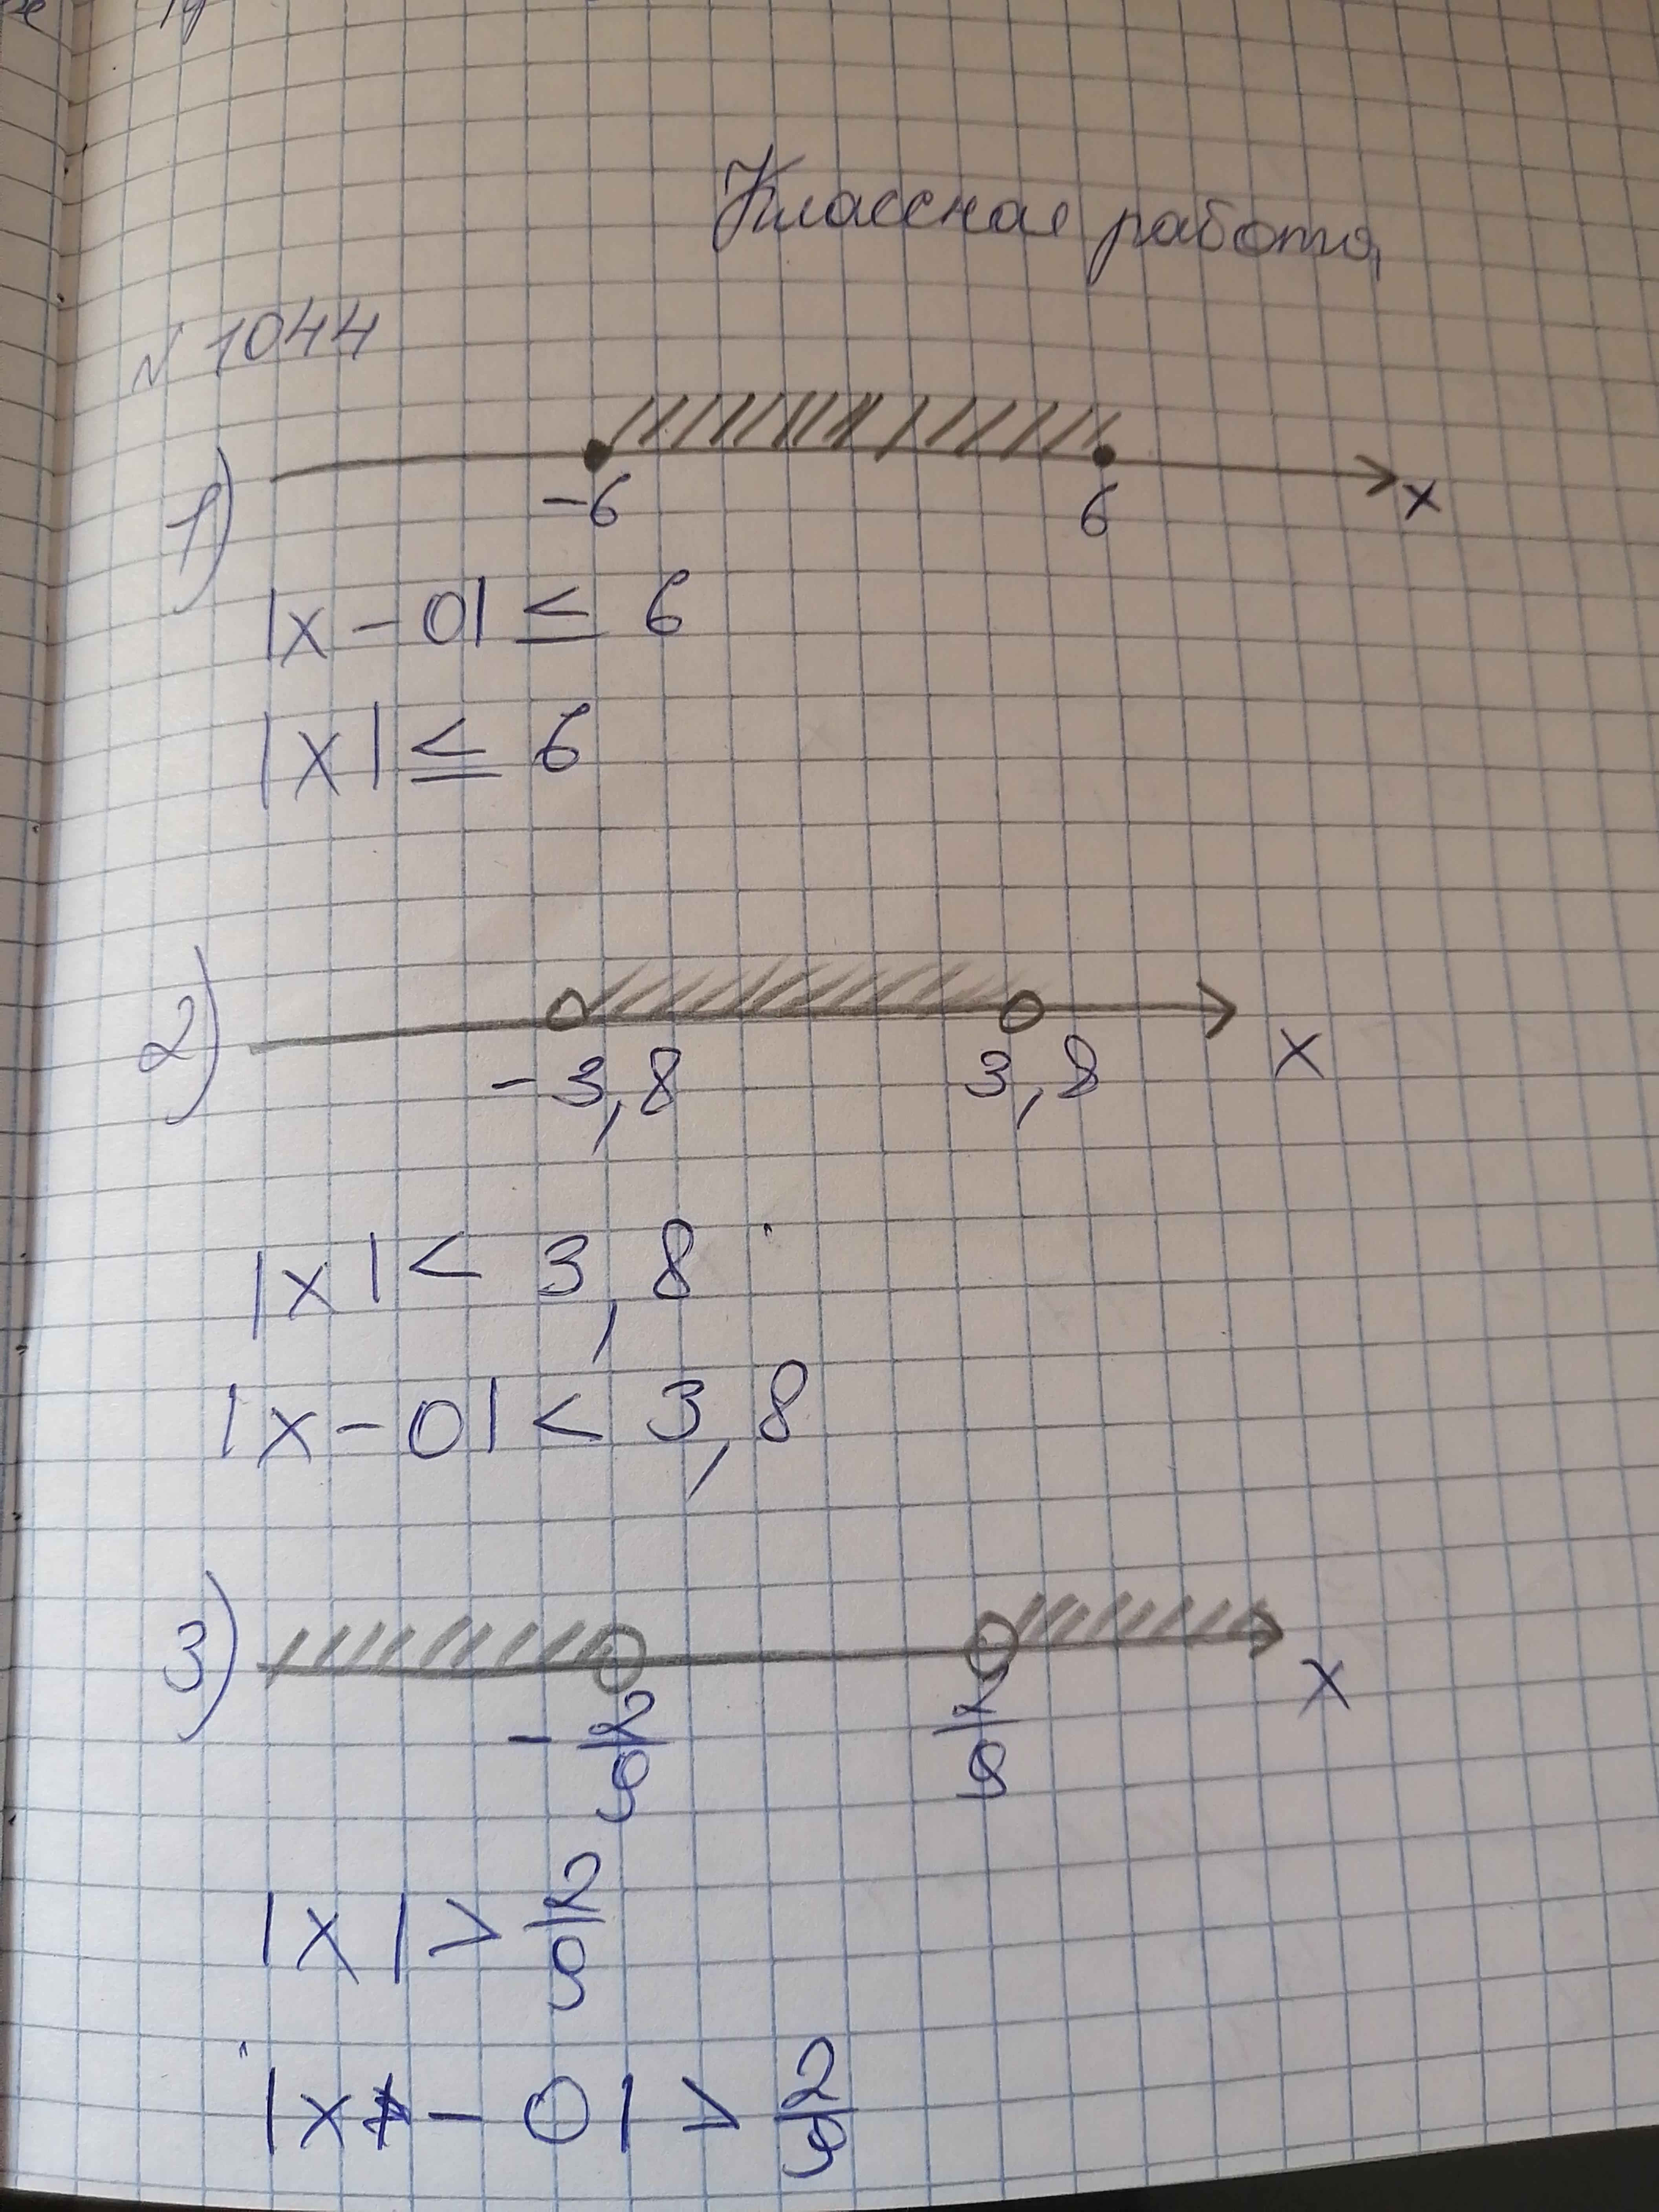 Классная работа
№ 1044
1)
-6 6 x
|x - 0| ≤ 6
|x| ≤ 6
2)
-3,8 3,8 x
|x| < 3,8
|x - 0| < 3,8
3)
-2/9 2/9 x
|x| > 2/9
|x - 0| > 2/9